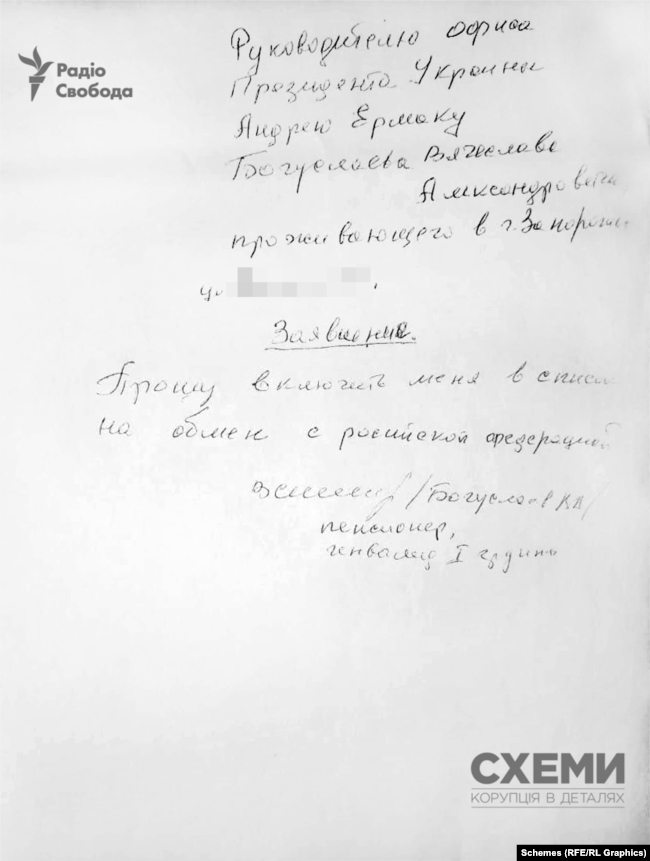 Радіо
Свобода
Руководителю офиса
Президента Украины
Андрею Ермаку
Богуслаева Вячеслава
Александровича
проживающего в г. Запорожье
ул.
Заявление.
Прошу включить меня в список
на обмен с росийской федерацией
/Богуслаев ВА/
пенсионер,
инвалид I группы
СХЕМИ
КОРУПЦІЯ В ДЕТАЛЯХ
Schemes (RFE/RL Graphics)